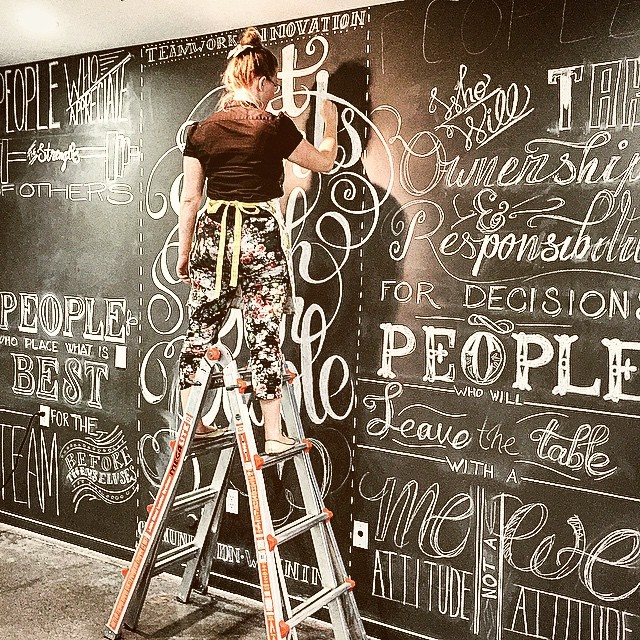 PEOPLE WHO
APPRECIATE
the Strengths
OF OTHERS
PEOPLE
WHO PLACE WHAT IS
BEST
FOR THE
TEAM BEFORE
THEMSELVES
TEAMWORK INNOVATION
it's
who will
Ownership
&
FOR DECISIONS
PEOPLE
WHO WILL
Leave the table
WITH A
me
ATTITUDE
NOT A
we
ATTITUDE